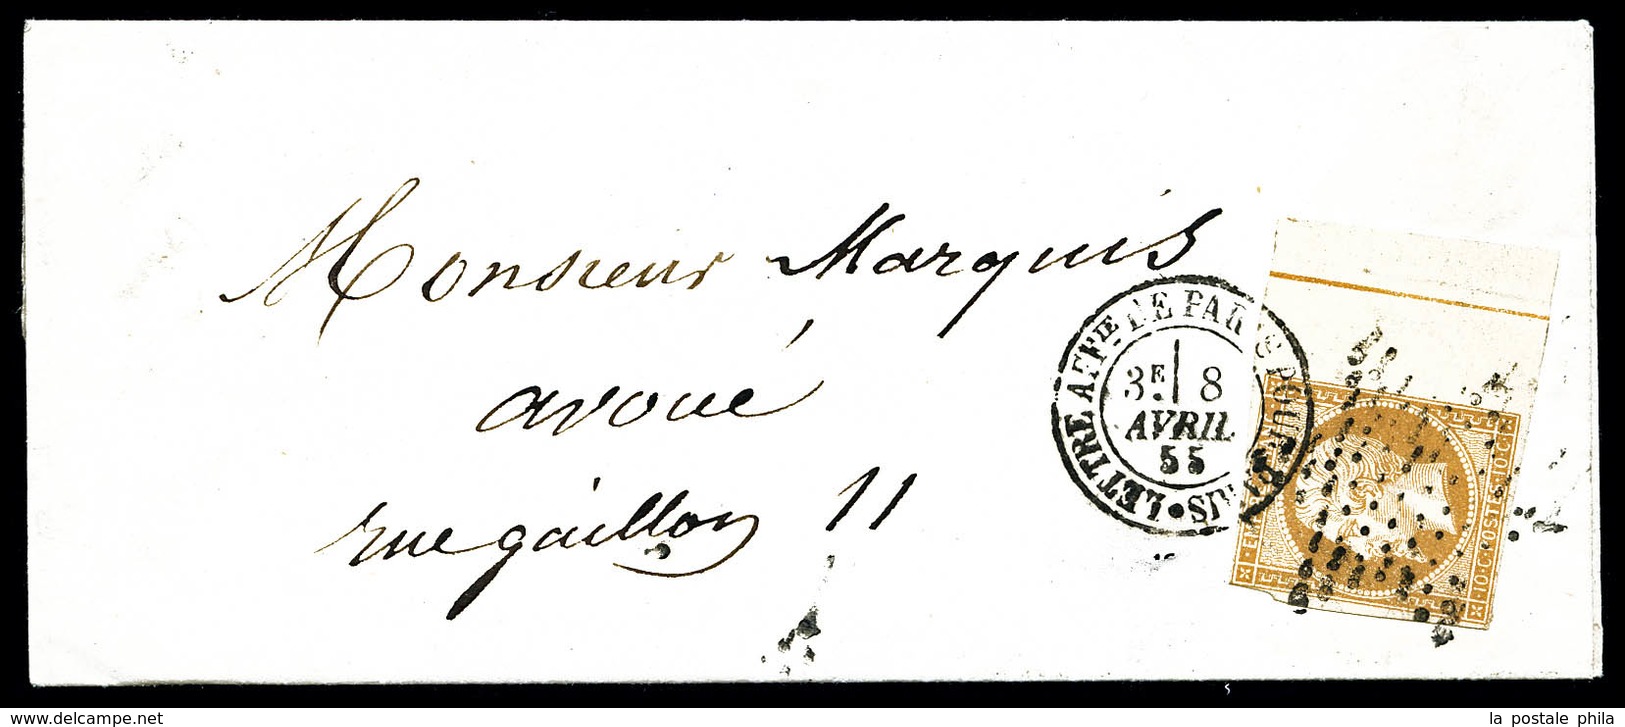 Monsieur Marquis
avoué
rue gaillon 11
LETTRE AFFIE DE PARIS POUR PARIS
3E 8
AVRIL
55
EM
10·C·POSTES·10·C
www.delcampe.net
la postale phila